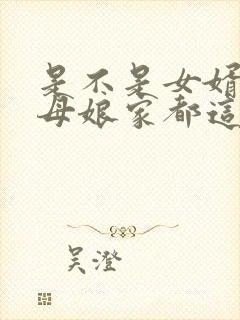 是不是女婿
母娘家都這
吴澄